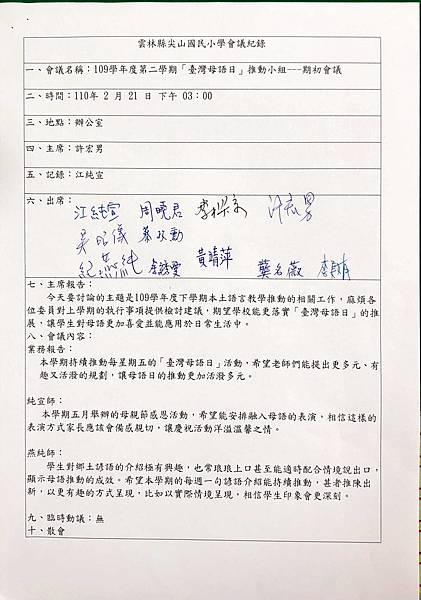 雲林縣尖山國民小學會議紀錄
一、會議名稱：109學年度第二學期「臺灣母語日」推動小組---期初會議
二、時間：110年 2 月 21 日 下午 03：00
三、地點：辦公室
四、主席：許宏男
五、記錄：江純宣
六、出席：
江純宣 周曉君 許宏男
吳昭儀
紀燕純 黃靖萍 龔名薇
七、主席報告：
今天要討論的主題是109學年度下學期本土語言教學推動的相關工作，麻煩各
位委員對上學期的執行事項提供檢討建議，期望學校能更落實「臺灣母語日」的推
展，讓學生對母語更加喜愛並能應用於日常生活中。
八、會議內容：
業務報告：
本學期持續推動每星期五的「臺灣母語日」活動，希望老師們能提出更多元、有
趣又活潑的規劃，讓母語日的推動更加活潑多元。
純宣師：
本學期五月舉辦的母親節感恩活動，希望能安排融入母語的表演，相信這樣的
表演方式家長應該會備感親切，讓慶祝活動洋溢溫馨之情。
燕純師：
學生對鄉土諺語的介紹極有興趣，也常琅琅上口甚至能適時配合情境說出口，
顯示母語推動的成效。希望本學期的每週一句諺語介紹能持續推動，甚者推陳出
新，以更有趣的方式呈現，比如以實際情境呈現，相信學生印象會更深刻。
九、臨時動議：無
十、散會